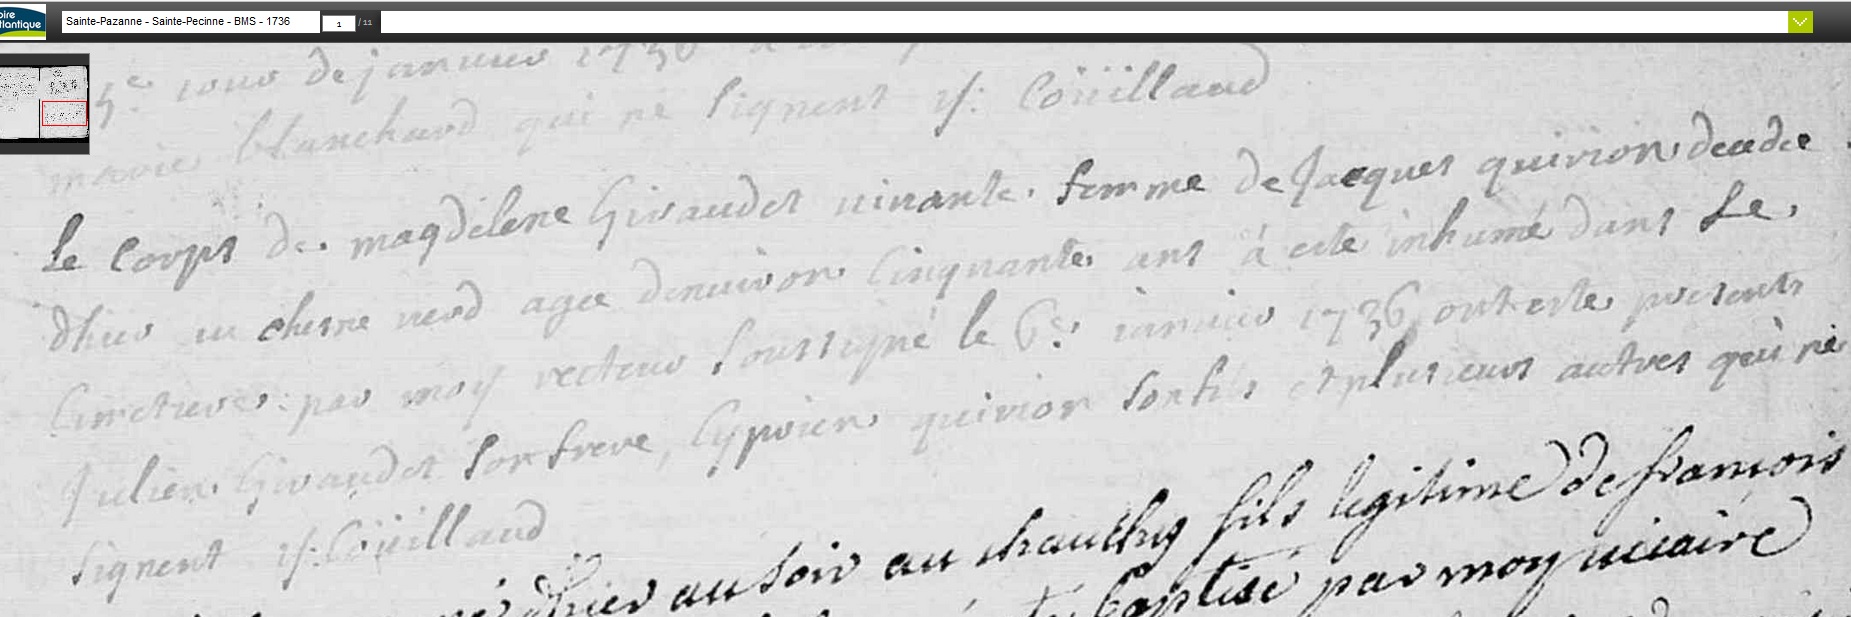 oire
tlantique
Sainte-Pazanne - Sainte-Pecinne - BMS - 1736
1 / 11
5e jour de janvier 1736
marie blanchard qui ne signent if: Coüillaud
Le Corps de magdelene Giraudet vivante femme de Jacques quirion decedee
dhier au chesne verd agee denuiron Cinquante ans à eté inhumé dans Le
Cimetiere par moy recteur soussigné le 6e: ianvier 1736 ont este presents
Julien Giraudet son frere, Cyprien quirion son fils et plusieurs autres qui ne
signent if: Coüillaud
né dhier au soir au fils legitime de françois
baptise par moy vicaire